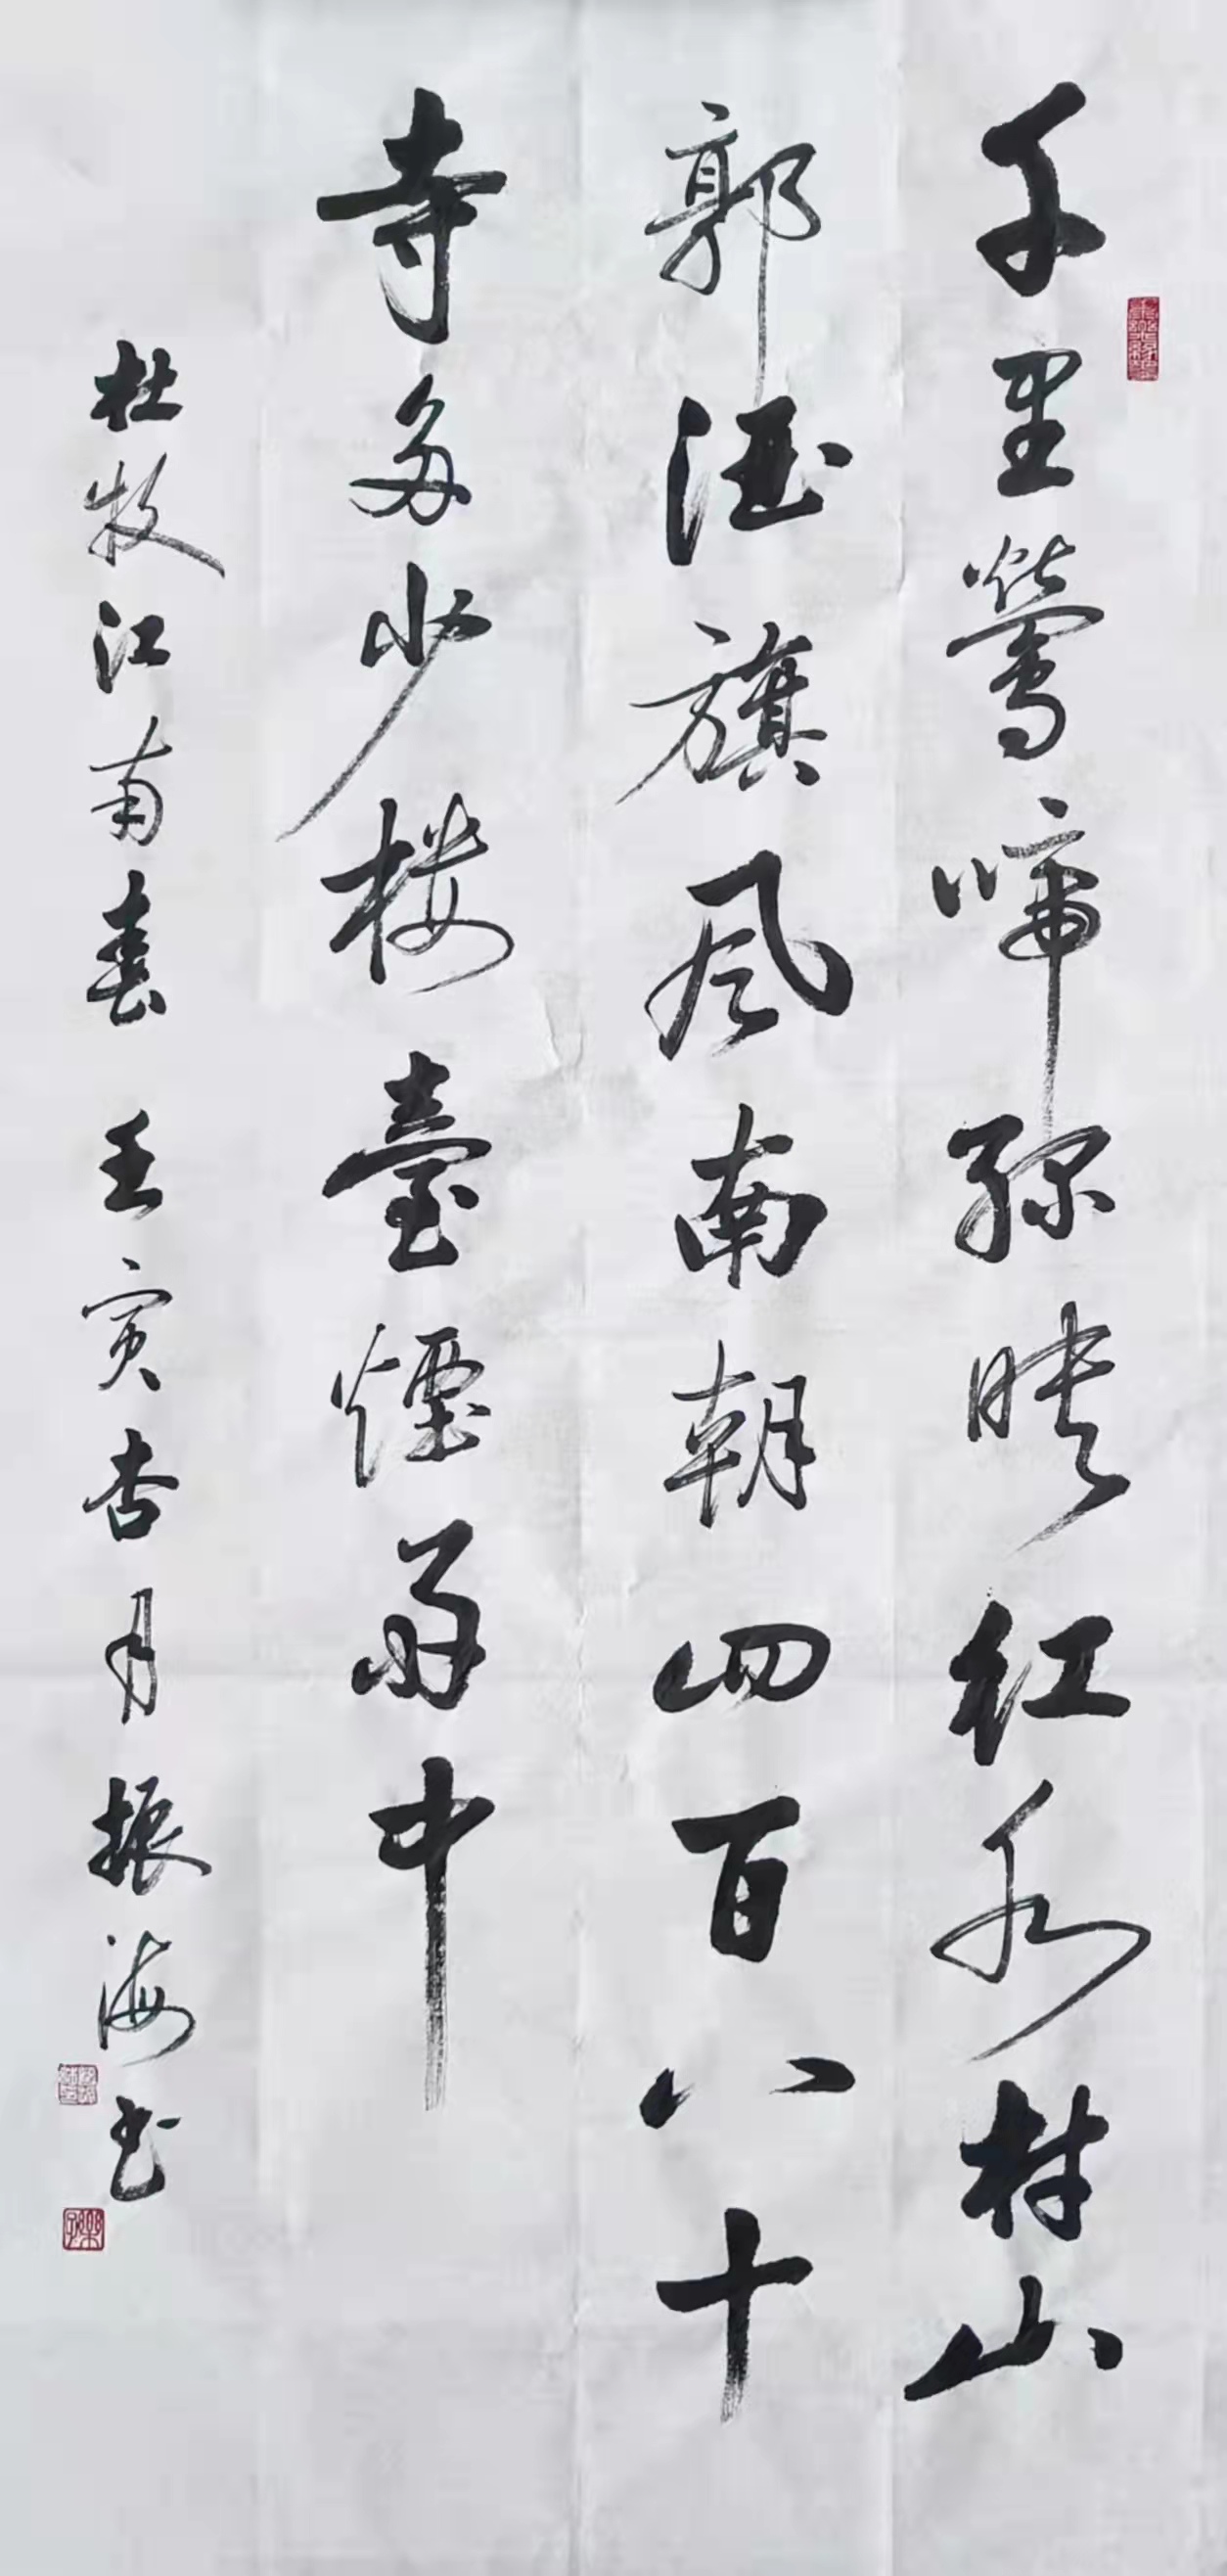 千里鶯啼绿映红水村山
郭酒旗风南朝四百八十
寺多少楼臺煙雨中
杜牧江南春 壬寅杏月振海书